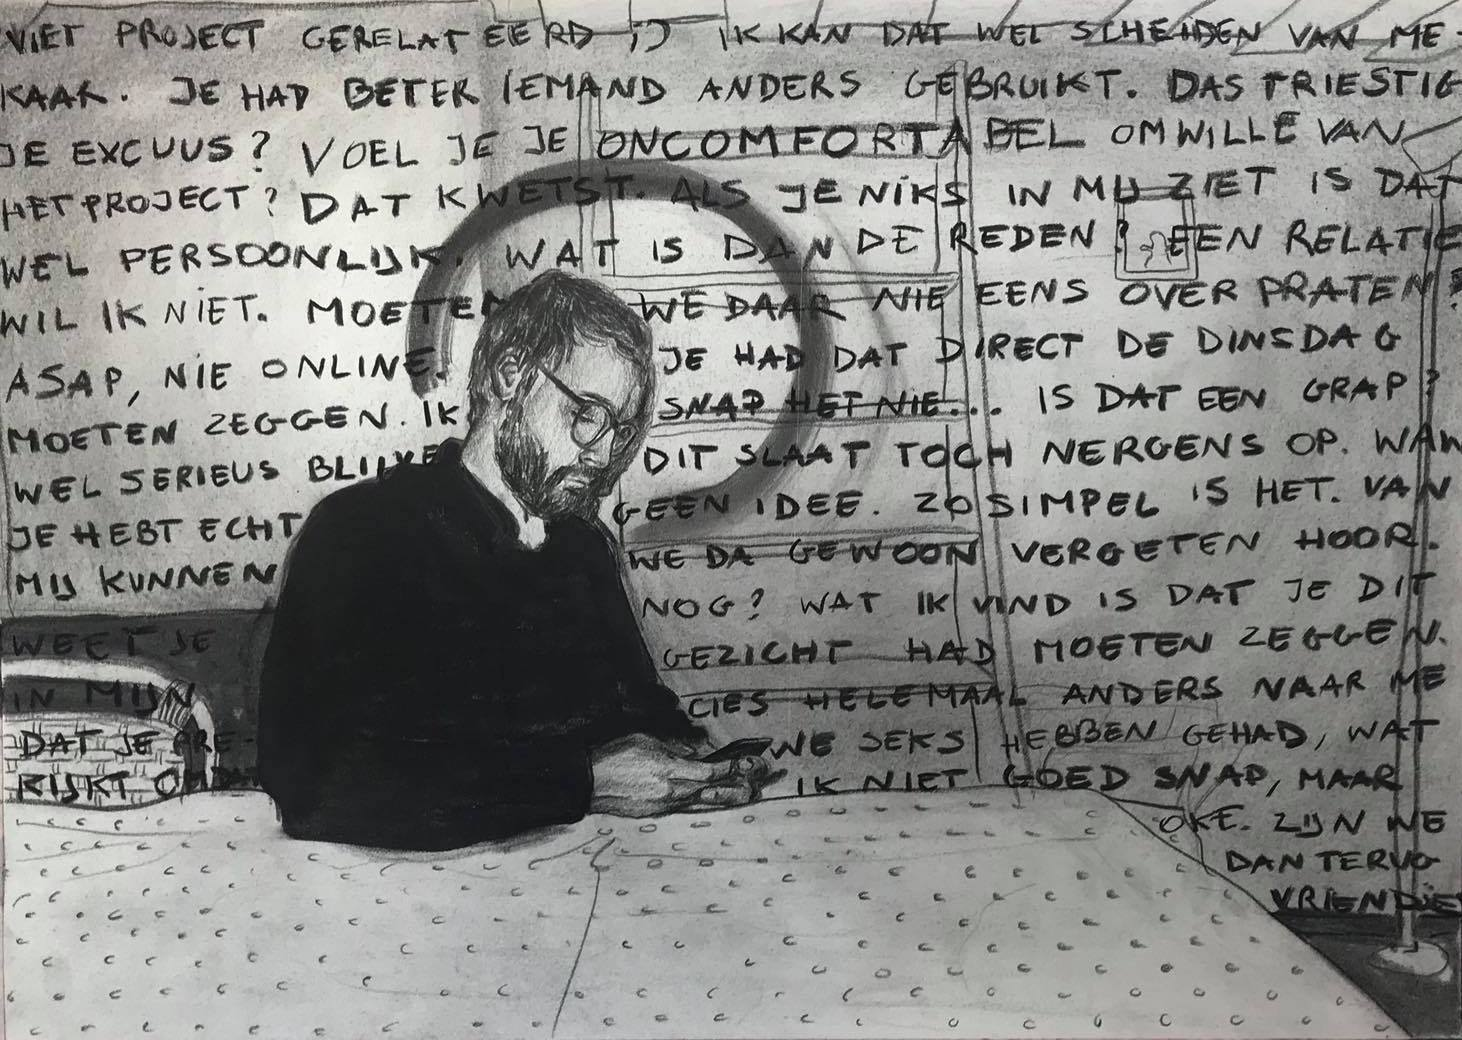 NIET PROJECT GERELATEERD ;) IK KAN DAT WEL SCHEIDEN VAN ME-
KAAR. JE HAD BETER IEMAND ANDERS GEBRUIKT. DAS TRIESTIG
JE EXCUUS? VOEL JE JE ONCOMFORTABEL OMWILLE VAN
HET PROJECT? DAT KWETST. ALS JE NIKS IN MIJ ZIET IS DAT
WEL PERSOONLIJK. WAT IS DAN DE REDEN? EEN RELATIE
WIL IK NIET. MOETEN WE DAAR NIE EENS OVER PRATEN?
ASAP, NIE ONLINE. JE HAD DAT DIRECT DE DINSDAG
MOETEN ZEGGEN. IK SNAP HET NIE... IS DAT EEN GRAP?
WEL SERIEUS BLIJVE DIT SLAAT TOCH NERGENS OP. WAN
JE HEBT ECHT GEEN IDEE. ZO SIMPEL IS HET. VAN
MIJ KUNNEN WE DA GEWOON VERGETEN HOOR.
WEET JE NOG? WAT IK VIND IS DAT JE DIT
IN MIJN GEZICHT HAD MOETEN ZEGGEN.
DAT JE PRE- CIES HELEMAAL ANDERS NAAR ME
KIJKT OMDAT WE SEKS HEBBEN GEHAD, WAT
IK NIET GOED SNAP, MAAR
OKE. ZIJN WE
DAN TERUG
VRIENDJE